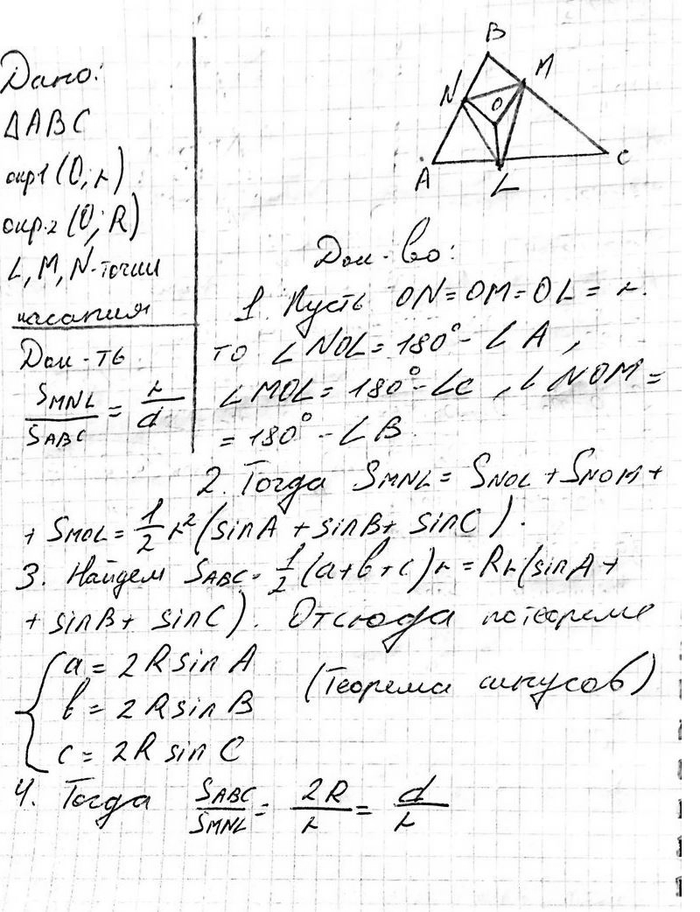 Дано:
ΔABC
окр1 (O; r)
окр.2 (O; R)
L, M, N - точки
касания
Док-ть
S_MNL / S_ABC = r / d
B
M
N
O
A
L
C
Док-во:
1. Пусть ON = OM = OL = r.
то ∠NOL = 180° - ∠A,
∠MOL = 180° - ∠C, ∠NOM =
= 180° - ∠B
2. Тогда S_MNL = S_NOL + S_NOM +
+ S_MOL = 1/2 r² (sinA + sinB + sinC).
3. Найдем S_ABC = 1/2 (a+b+c) r = Rr(sinA +
+ sinB + sinC). Отсюда по теореме
{ a = 2R sin A
b = 2R sin B (Теорема синусов)
c = 2R sin C
4. Тогда S_ABC / S_MNL = 2R / r = d / r